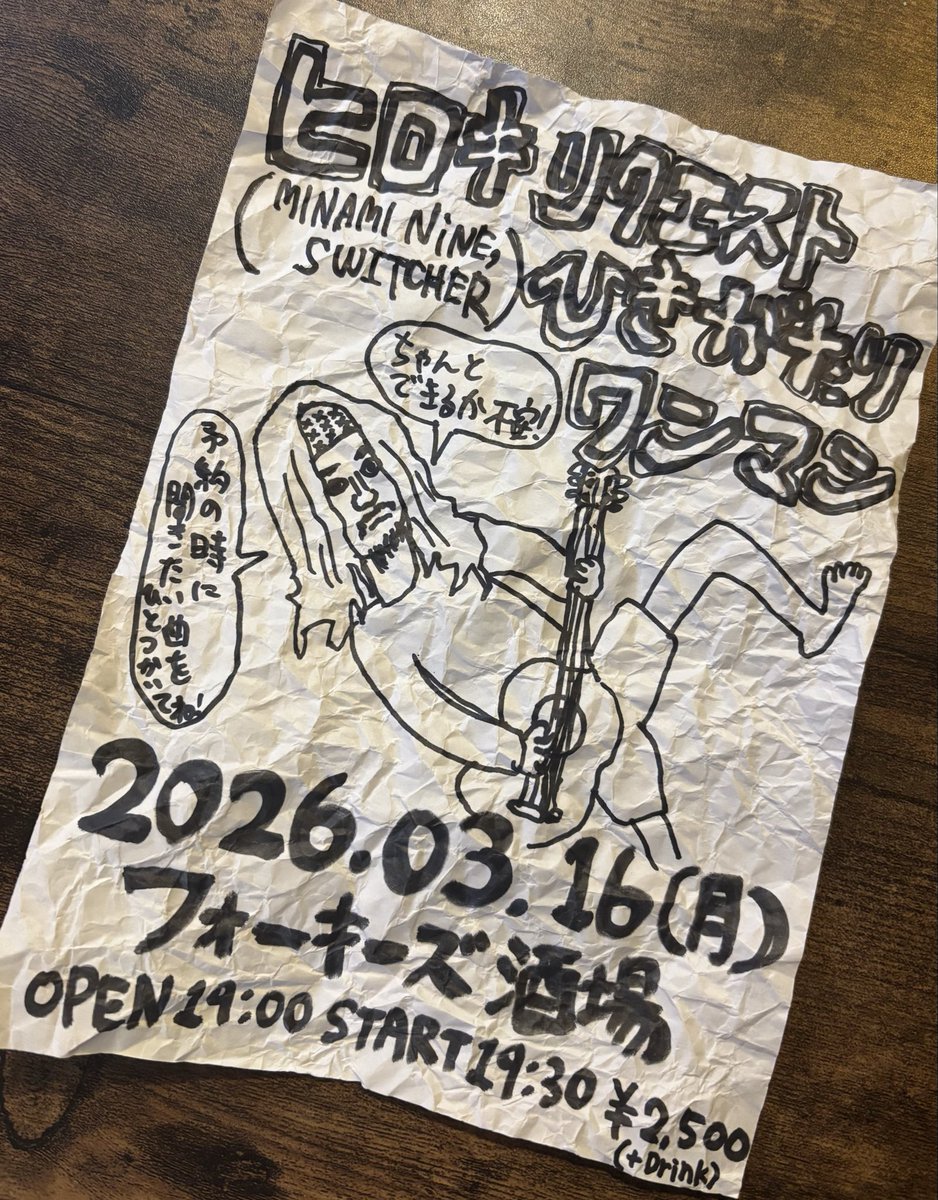 ヒロキ リクエスト
(MINAMI NiNE,
SWITCHER)
ひきがたり
ワンマン
ちゃんと
できるか不安!
予約の時に
聞きたい曲を
ひとつかいてね!
2026.03.16(月)
フォーキーズ酒場
OPEN 19:00 START 19:30
¥2,500
(+Drink)